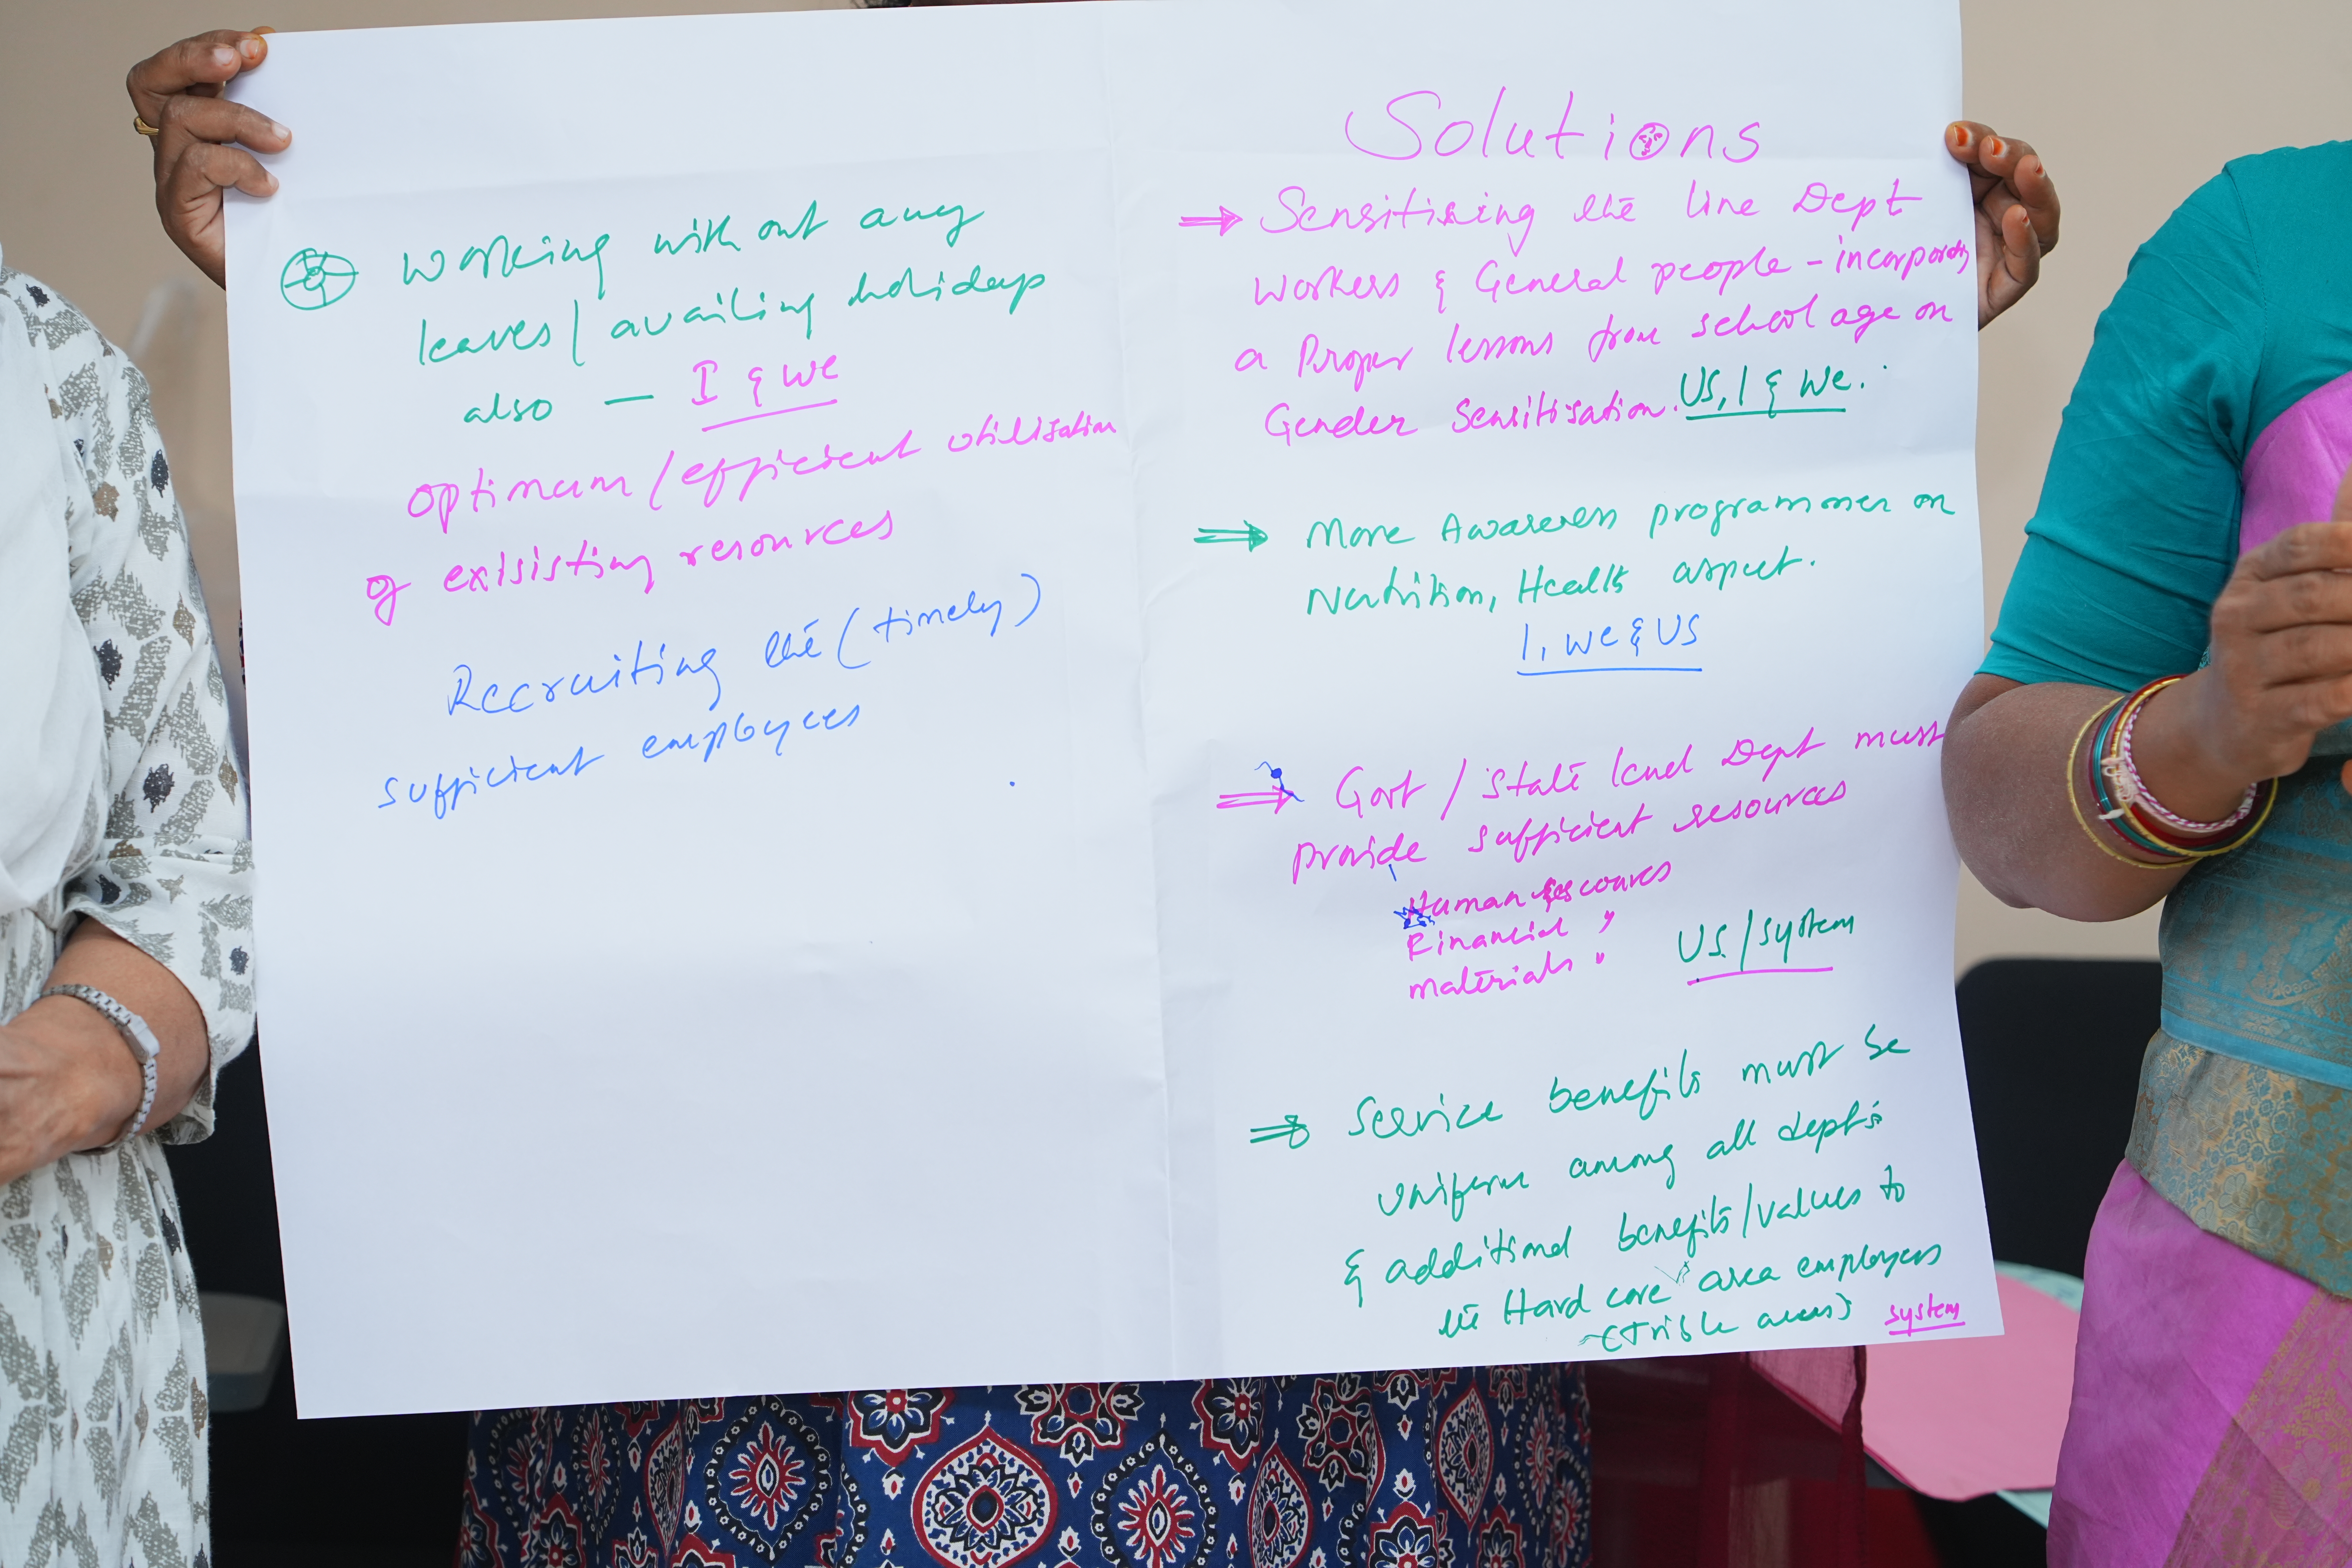 working with out any
leaves / availing holidays
also — I & we
optimum / efficient utilisation
of exisisting resources
Recruiting the (timely)
sufficient employees
Solutions
⇒ Sensitising the line Dept
workers & General people - incorporating
a Proper lessons from school age on
Gender Sensitisation. US, I & We.
⇒ More Awareness programmes on
Nutrition, Health aspect.
I, we & US
⇒ Govt / State level Dept must
provide sufficient resources
Human Resources
Financial "
materials " US / system
⇒ Service benefits must be
uniform among all dept's
& additional benefits / values to
the Hard core area employees
(Trible areas) system